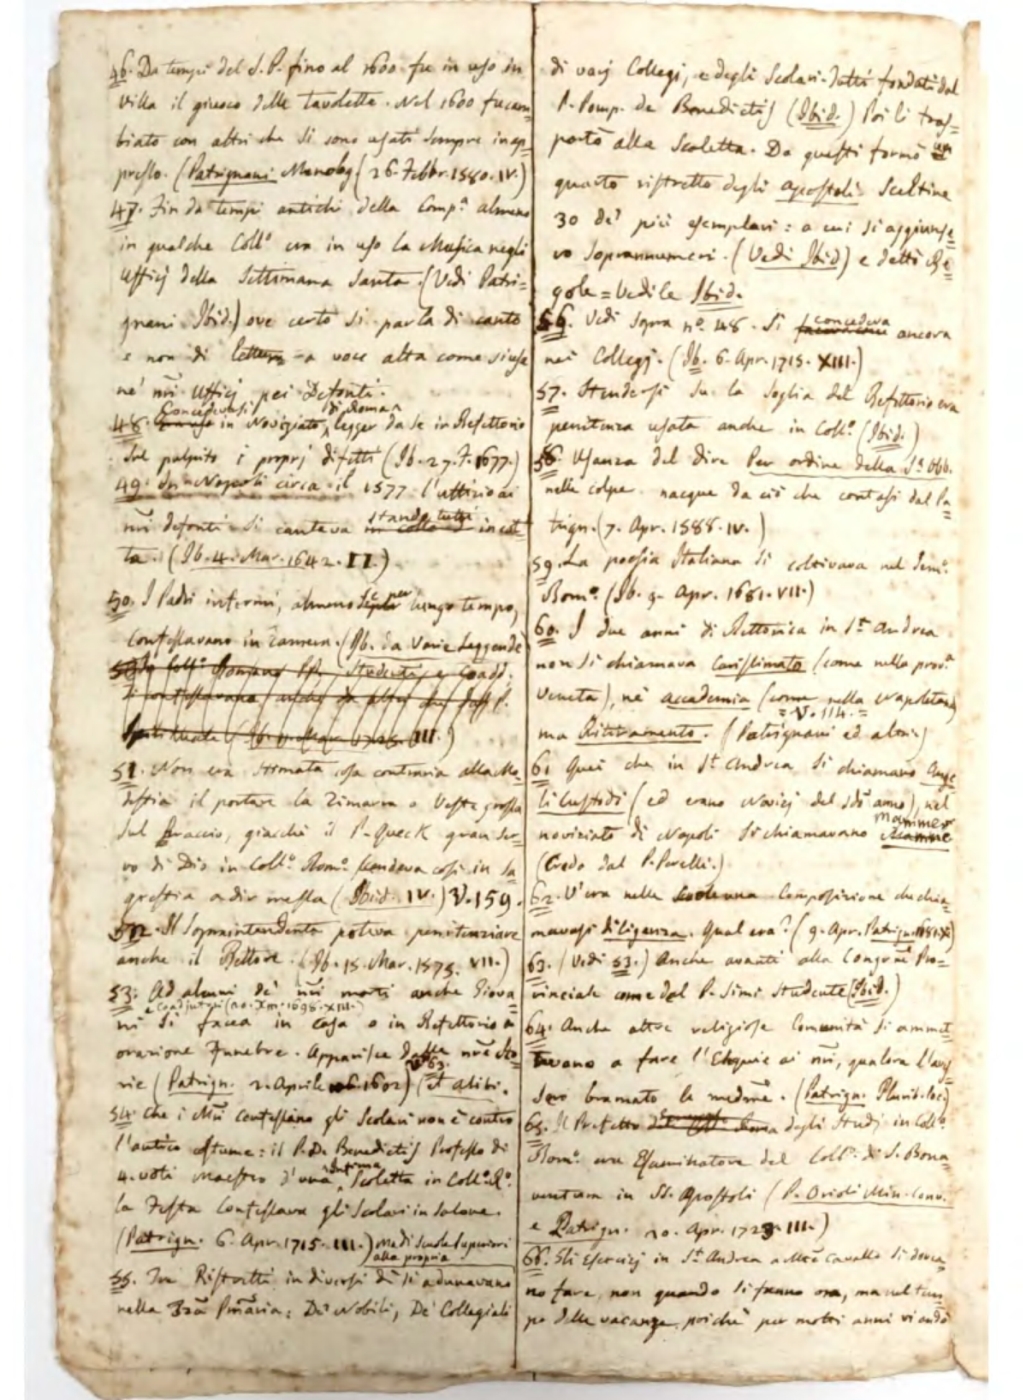 46. Da tempi del S. P. fino al 1600 fu in uso in
villa il giuoco delle tavolette. Nel 1600 fu cam-
biato con altri che si sono usati sempre in ap-
presso. (Patrignani Menolog. (26. Febbr. 1580. IV.)
47. Fin da tempi antichi della Comp.ª almeno
in qualche Coll.º era in uso la Musica negli
Ufficj della Settimana Santa. (Vedi Patri-
gnani Ibid.) ove certo si parla di canto
e non di lettura a voce alta come si usa
ne' nri Ufficj pei Defonti.
48. Concedevasi in Noviziato, leggere da se in Refettorio
sul pulpito i proprj difetti (Ib. 27. F. 1677.)
49. In Napoli circa il 1577 l'uffizio ai
nri defonti si cantava stando tutti in
(Ib. 4. Mar. 1642. II.)
50. I Padri infermi, almeno per lungo tempo,
confessavano in Camera. (Ib. da varie Leggende)
51. Non era stimata cosa contraria alla Mo-
destia il portare la Zimarra o Veste grossa
sul braccio, giacchè il P. Queck gran ser-
vo di Dio in Coll.º Rom.º scendeva così in Sa-
grestia a dir messa (Ibid. IV.) V. 159.
52. Il Sopraintendente poteva penitenziare
anche il Rettore. (Ib. 15. Mar. 1575. VII.)
53. Ad alcuni de' nri morti anche Giova-
e Coadjutori (20. Xm. 1698. XIII.)
ni si facea in casa o in Refettorio
orazione Funebre. Apparisce dalle nre Sto-
rie (Patrign. 2. Aprile 1602) (et alibi.
54. Che i Nri Confessino gli Scolari non è contro
l'antico costume: il P. De Benedictis Professo di
4. voti Maestro d'una Infima Scoletta in Coll.º R.º
la Festa Confessava gli Scolari in Salone.
(Patrign. 6. Apr. 1715. III.) ma di Scuole Superiori
alla propria
55. Tre Ristretti in diversi dì si adunavano
nella Pmaria: De' Nobili, De' Collegiali
di varj Collegi, e degli Scolari. Tutti fondati dal
P. Pomp. de Benedictis (Ibid.) Poi li tras-
portò alla Scoletta. Da questi formò un
quarto ristretto degli Apostoli. Scelti ne
30 de' più esemplari: a cui si aggiunse-
ro Soprannumeri. (Vedi Ibid) e detti Re-
gole = Vedile Ibid.
56. Vedi sopra nº. 48. Si concedeva ancora
nei Collegj. (Ib. 6. Apr. 1715. XIII.)
57. Stendersi su la soglia del Refettorio era
penitenza usata anche in Coll.º (Ibid.)
58. Usanza del dire Per ordine della Sª. Obb.
nelle colpe nacque da ciò che contasi dal Pa-
trign. (7. Apr. 1588. IV.)
59. La poesia Italiana si coltivava nel Sem.º
Rom.º (Ib. 9. Apr. 1681. VII.)
60. I due anni di Rettorica in S.t Andrea
non si chiamava Carissimato (come nella prov.ª
Veneta), nè Accademia (come nella Napoletana)
= V. 114. =
ma Ritiramento. (Patrignani ed altri.)
61. Quei che in S.t Andrea si chiamano Ange-
li Custodi (ed erano Novizj del 2dº anno), nel
noviziato di Napoli si chiamavano Mammex
(Credo dal P. Perelli.)
62. V'era nelle Scole una Composizione che chia-
mavasi diligenza. Qual era? (9. Apr. Patrign. 1681. X)
63. (Vedi 53.) Anche avanti alla Congrne Pro-
vinciale come del P. Simi studente (Ibid.)
64. Anche altre religiose Comunità si ammet-
tevano a fare l'Esequie ai nri, qualora l'aves-
sero bramato le medme. (Patrign. Plurib. loc.)
65. Il Prefetto degli Studj in Coll.º
Rom.º era Esaminatore del Coll.º di S. Bona-
ventura in SS. Apostoli (P. Ovidi Min. Conv.
e Patrign. 20. Apr. 1723. III.)
66. Gli Esercizj in S.t Andrea a Mte Cavallo si dova-
no fare, non quando si fanno ora, ma nel tem-
po delle vacanze, poichè per molti anni vi andò